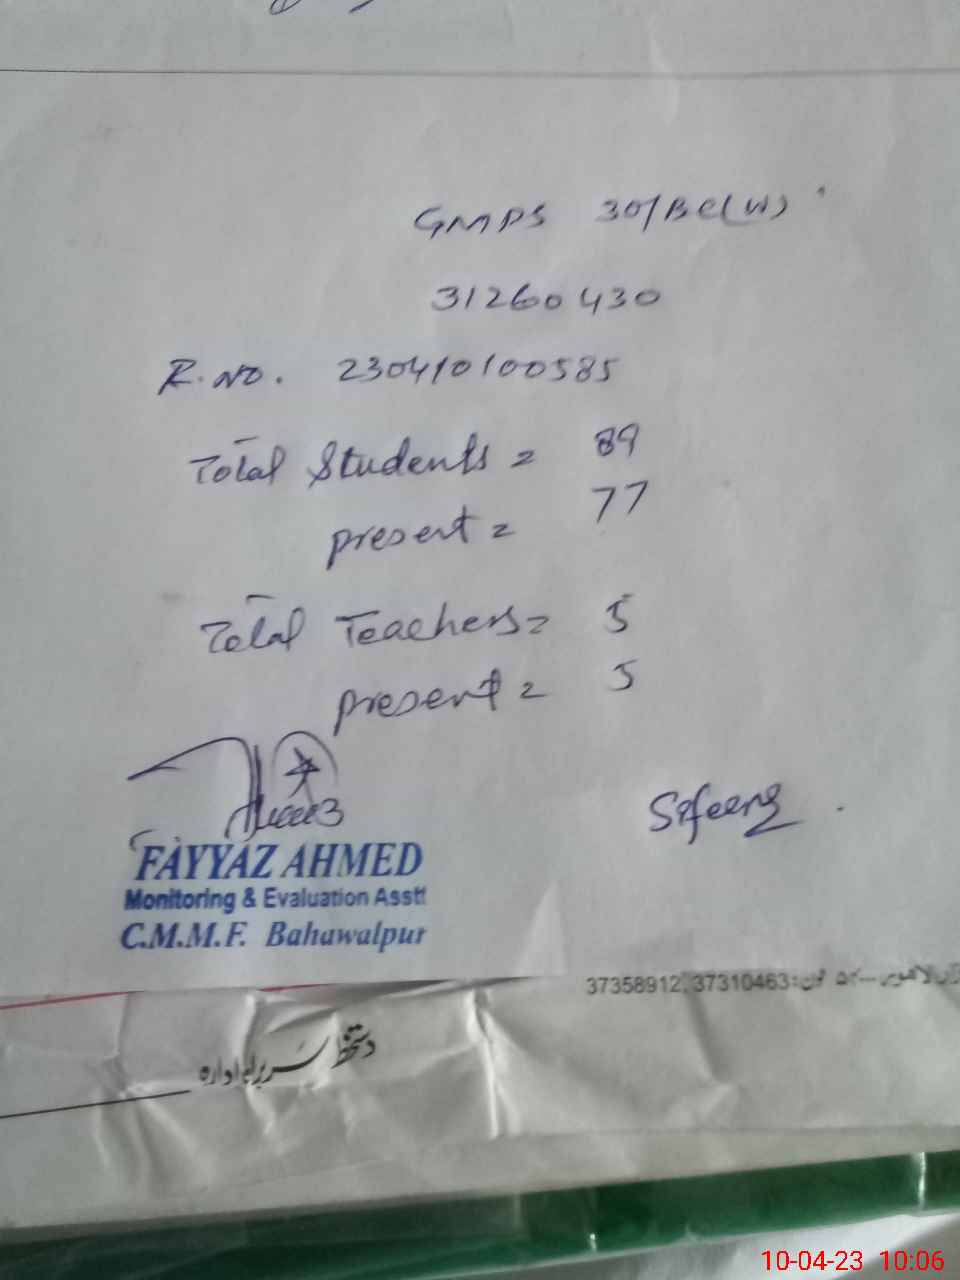 GMPS 30/BC(W)
31260430
R.NO. 230410100585
Total Students = 89
present = 77
Total Teachers = 5
present = 5
FAYYAZ AHMED
Monitoring & Evaluation Asstt
C.M.M.F. Bahawalpur
37358912, 37310463
دستخط سربراہ ادارہ
10-04-23 10:06